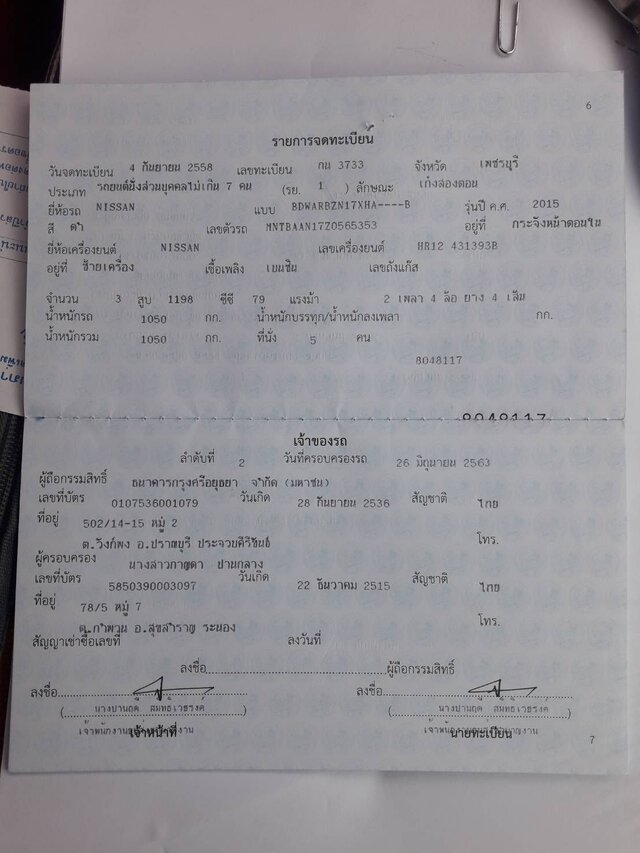 6
รายการจดทะเบียน
วันจดทะเบียน 4 กันยายน 2558 เลขทะเบียน กน 3733 จังหวัด เพชรบุรี
ประเภท รถยนต์นั่งส่วนบุคคลไม่เกิน 7 คน (รย. 1 ) ลักษณะ เก๋งสองตอน
ยี่ห้อรถ NISSAN แบบ BDWARBZN17XHA----B รุ่นปี ค.ศ. 2015
สี ดำ เลขตัวรถ MNTBAAN17Z0565353 อยู่ที่ กระจังหน้าตอนใน
ยี่ห้อเครื่องยนต์ NISSAN เลขเครื่องยนต์ HR12 431393B
อยู่ที่ ซ้ายเครื่อง เชื้อเพลิง เบนซิน เลขถังแก๊ส
จำนวน 3 สูบ 1198 ซีซี 79 แรงม้า 2 เพลา 4 ล้อ ยาง 4 เส้น
น้ำหนักรถ 1050 กก. น้ำหนักบรรทุก/น้ำหนักลงเพลา กก.
น้ำหนักรวม 1050 กก. ที่นั่ง 5 คน
8048117
8048117
เจ้าของรถ
ลำดับที่ 2 วันที่ครอบครองรถ 26 มิถุนายน 2563
ผู้ถือกรรมสิทธิ์ ธนาคารกรุงศรีอยุธยา จำกัด (มหาชน)
เลขที่บัตร 0107536001079 วันเกิด 28 กันยายน 2536 สัญชาติ ไทย
ที่อยู่ 502/14-15 หมู่ 2
ต.วังก์พง อ.ปราณบุรี ประจวบคีรีขันธ์ โทร.
ผู้ครอบครอง นางสาวกาญดา ปานกลาง
เลขที่บัตร 5850390003097 วันเกิด 22 ธันวาคม 2515 สัญชาติ ไทย
ที่อยู่ 78/5 หมู่ 7 โทร.
ต.กำพวน อ.สุขสำราญ ระนอง
สัญญาเช่าซื้อเลขที่ ลงวันที่
ลงชื่อ ผู้ถือกรรมสิทธิ์
ลงชื่อ ลงชื่อ
เจ้าหน้าที่ นายทะเบียน
7